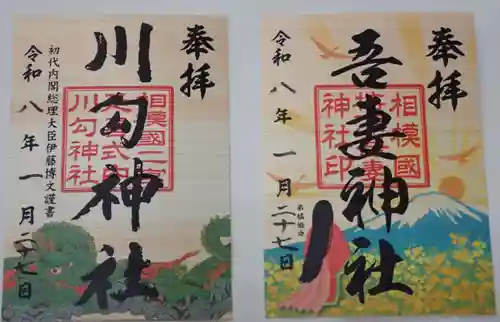 奉拝
川勾神社
相模國二宮
川勾神社
初代内閣総理大臣伊藤博文謹書
令和八年一月二十七日
奉拝
吾妻神社
相模國
神社印
弟橘媛命
令和八年一月二十七日